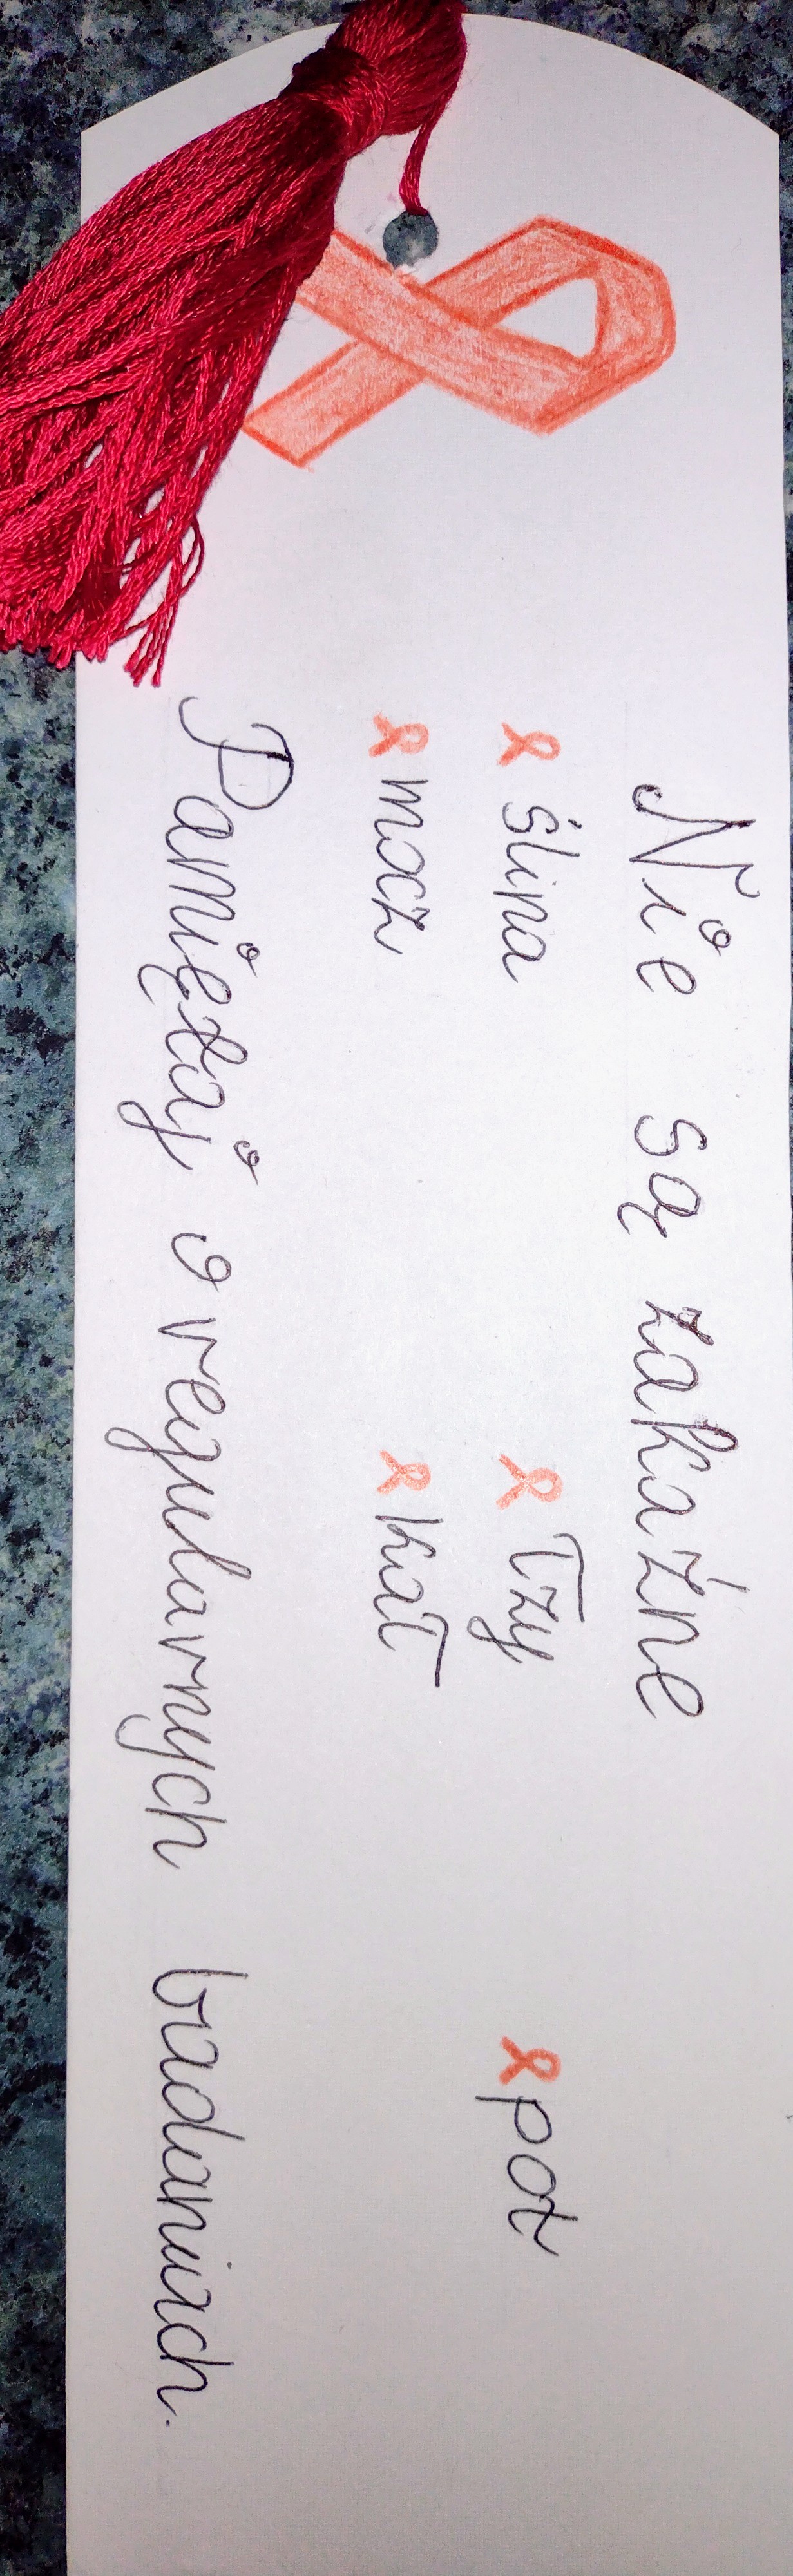 Nie są zakaźne
ślina łzy pot
mocz kał
Pamiętaj o regularnych badaniach.